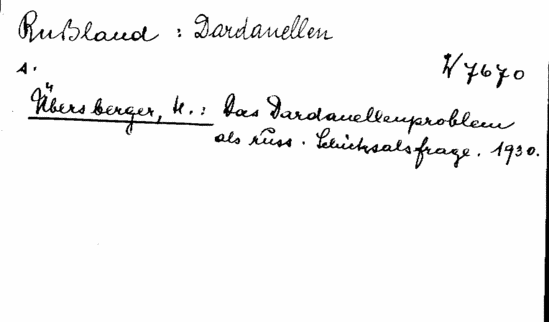 Rußland : Dardanellen
W 7670
A.
Übersberger, H. : Das Dardanellenproblem
als russ. Schicksalsfrage. 1930.